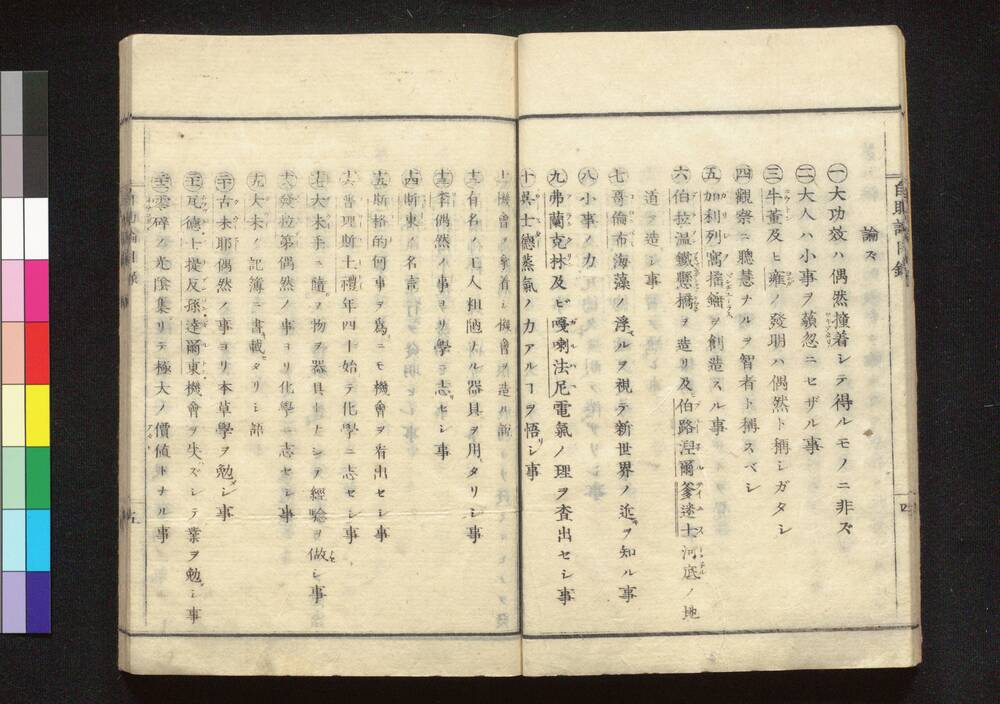 自助論目録
四
論ズ
㊀大功效ハ偶然撞着シテ得ルモノニ非ズ
㊁大人ハ小事ヲ藐忽ニセザル事
㊂牛董及ヒ雍ノ發明ハ偶然ト稱シガタシ
㊃觀察ニ聰慧ナルヲ智者ト稱スベシ
㊄加利列窩搖錘ヲ創造スル事
㊅伯拉温鐵懸橋ヲ造リ及伯路湼爾爹迷士河底ノ地
道ヲ造シ事
㊆哥倫布海藻ノ浮ルヲ視テ新世界ノ近ヲ知ル事
㊇小事ノ力
㊈弗蘭克林及ビ嘎喇法尼電氣ノ理ヲ査出セシ事
㊉吳士德蒸氣ノ力アルヿヲ悟シ事
十一機會ノ拏着シ機會ヲ造ル說
十二有名ノ工人粗陋ナル器具ヲ用タリシ事
十三李偶然ノ事ヨリ學ニ志セシ事
十四斯東ノ名言
十五斯格的何事ヲ爲ニモ機會ヲ看出セシ事
十六普理斯土禮年四十始テ化學ニ志セシ事
十七大未手ニ隨フ物ヲ器具トシテ經驗ヲ做シ事
十八發拉第偶然ノ事ヨリ化學ニ志セシ事
十九大未ノ記簿ニ書載タリシ語
二十古未耶偶然ノ事ヨリ本草學ヲ勉シ事
二十一瓦德士提反孫達爾東機會ヲ失ズシテ業ヲ勉シ事
二十二零碎ノ光陰集リテ極大ノ價値トナル事
五